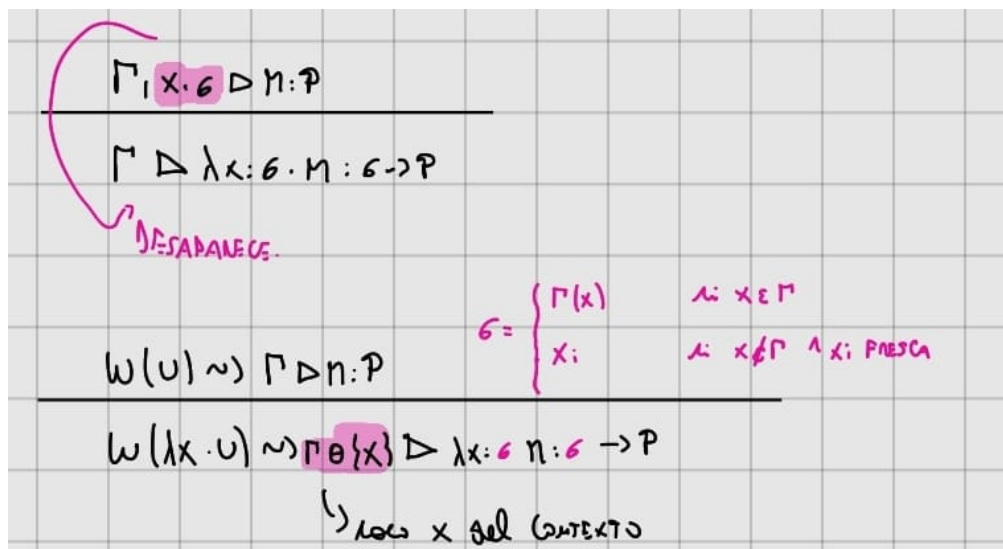 Γ, x:σ ▷ M:ρ
Γ ▷ λx:σ.M : σ→ρ
DESAPARECE.
σ = { Γ(x) si x ∈ Γ
Xi si x ∉ Γ ∧ Xi FRESCA
W(U) ⇝ Γ ▷ M:ρ
W(λx.U) ⇝ Γ⊖{x} ▷ λx:σ M:σ → ρ
↳ saco x del CONTEXTO